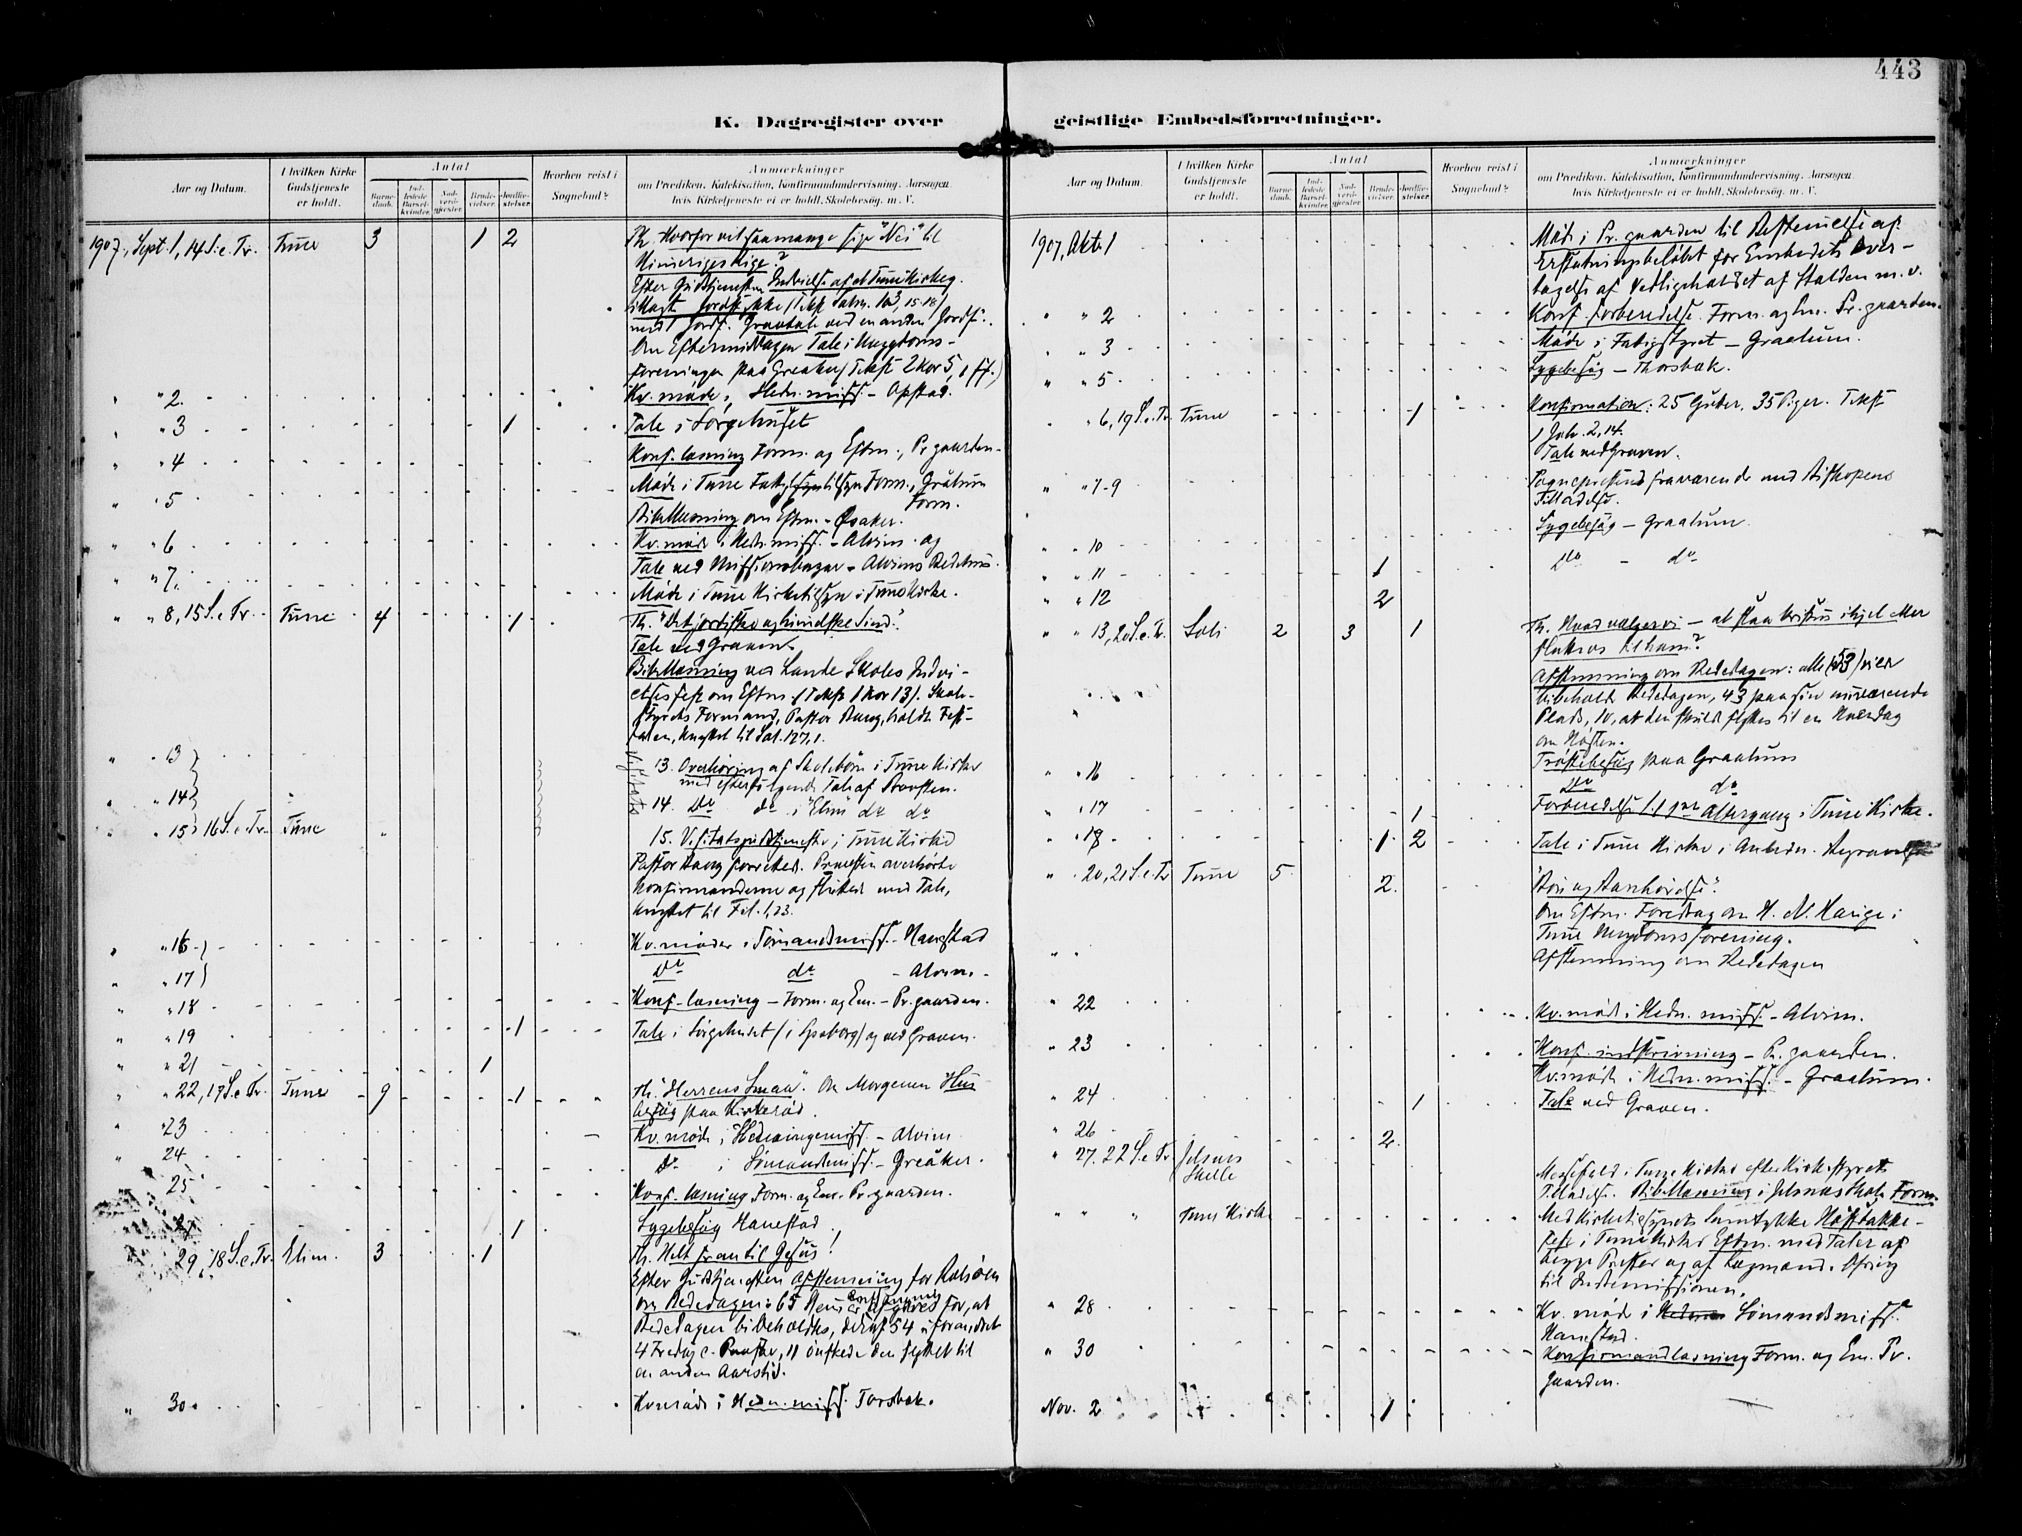 443
K. Dagregister over geistlige Embedsforretninger.
Aar og Datum.
I hvilken Kirke Gudstjeneste er holdt.
Antal
Barnedaab.
Indledede Barselkvinder.
Brudevielser.
Jordfæstelser.
Hvorhen reist i Sognebud?
Anmærkninger
om Prædiken, Katekisation, Konfirmandundervisning, Aarsagen
hvis Kirketjeneste ei er holdt, Skolebesøg, m. V.
1907, Sept. 1, 14 S. e. Tr. Tune 3 1 2 Th. Hvorfor vil saamange sige "Nei" til
Himmeriges Rige?
Efter Gudstjenesten Indvielse af et Tune Kirkeg.
tillagt Jordstykke (Text Salm. 103, 15-18)
med 1 Jordf. Gravtale ved en anden Jordf.
Om Eftermiddagen Tale i Ungdoms-
foreningen paa Greaker (Tekst 2 Kor 5, 1 ff.)
" " 2. Kv. møde i Hedn. miss. - Opstad.
" " 3 1 Tale i Sørgehuset
" " 4 Konf. læsning Form. og Eftm., Pr. gaarden.
" " 5 Møde i Tune Form.
Form.
Bibellæsning om Eftm.
" " 6 Kv. møde i Hedn. miss. - Alvim. og
" " 7. Tale ved Missionsbazar - Alvims Bedehus.
Møde i Tune Kirketilsyn i Tune Kirke.
" " 8, 15 S. e. Tr. Tune 4 1 Th. "Det jordiske og himmelske Sind".
Tale ved Graven.
Bibellæsning ved Lande Skoles Indvi-
elsesfest om Eftm. (Tekst 1 Kor 13). Skole-
styrets Formand, Pastor holdt Fest-
talen, knyttet til Sal. 127, 1.
" " 13) 13. Overhøring af Skolebørn i Tune Kirke
med efterfølgende Tale af Provsten.
" " 14) 14. Do do i "Elim" do do
" " 15) 16 S. e. Tr. Tune 15. Visitatsgudstjeneste i Tune Kirke
Pastor forrettede. Provsten overhørte
Konfirmanderne og sluttede med Tale,
knyttet til Fil. 1, 23.
" " 16) Kv. møder i Sømandsmiss. - Hanestad
" " 17) Do do - Alvim.
" " 18 Konf. læsning - Form. og Em. - Pr. gaarden.
" " 19 1 Tale i Sørgehuset (i Sarpsborg) og ved Graven.
" " 21 1
" " 22, 17 S. e. Tr. Tune 9 1 Th. "Herrens Smaa". Om Morgenen Hus
besøg paa Kirkerød.
" " 23 Kv. møde i Hedningemiss. - Alvim.
" " 24 do i Sømandsmiss. - Greåker.
25 Konf. læsning Form. og Em. Pr. gaarden.
1 Sygebesøg Hanestad.
29, 18 S. e. Tr. Elim. 3 1 Th. Helt frem til Jesus!
Efter Gudstjenesten Afstemning for Kolsåsen
om Bededagen: 65 Stemmer afgaves for, at
Bededagen bibeholdtes, deraf 54 uforandret
4 Fredag e. Paaske, 11 ønskede den flyttet til
en anden Aarstid.
" 30. Kv. møde i Hedn. miss. Torsbæk.
Aar og Datum.
I hvilken Kirke Gudstjeneste er holdt.
Antal
Hvorhen reist i Sognebud?
Anmærkninger
om Prædiken, Katekisation, Konfirmandundervisning, Aarsagen
hvis Kirketjeneste ei er holdt, Skolebesøg, m. V.
1907, Oktr. 1 Møde i Pr. gaarden til Bestemmelse af
Erstatningsbeløbet for Embedets Over-
tagelse af Vedligeholdet af Stalden m. v.
" " 2 Konf. Forberedelse. Form. og Em. Pr. gaarden.
" " 3 Møde i Fatigstyret - Graalum.
" " 5 Sygebesøg - Thorsbæk.
" 6, 19 S. e. Tr. Tune 1 Konfirmation: 25 Gutter, 35 Piger. Tekst
1 Joh. 2, 14.
Tale ved Graven.
" " 7-9 Sognepresten fraværende med Biskopens
Tilladelse.
" " 10 Sygebesøg - Graalum
" " 11 1 Do - do
" " 12 2
" " 13, 20 S. e. Tr. Soli 2 3 1 Th. Hvad vælger vi - at slaa Kristus ihjel eller
slutte os til ham?
Afstemning om Bededagen: alle (53) vilde
bibeholde Bededagen, 43 paa sin nuværende
Plads, 10, at den skulde flyttes til en Hverdag
om Høsten.
" " 16 Trøstebesøg paa Graalum
Do do
" " 17 1 Forberedelse til 1ste Altergang i Tune Kirke.
" " 19 1 2 Tale i Tune Kirke i Anledn. Begravelse
" " 20, 21 S. e. Tr Tune 5 2 "Bøn og Bønhørelse".
Om Eftm. Foredrag om H. N. Hauge i
Tune Ungdomsforening.
Afstemning om Bededagen
" 22 Kv. møde i Hedn. miss. - Alvim.
" 23 Konf. indskrivning - Pr. gaarden.
Kv. møde i Hedn. miss. - Graalum.
" 24 1 Tale ved Graven.
" 26 2
" 27. 22 S. e. Tr. Jelsnes
Skole
Messefald i Tune Kirke efter Kirkestyrets
Tilladelse. Bibellæsning i Jelsnes Skole Form.
" " " Tune Kirke Med Kirketilsynets Samtykke Høsttakke-
fest i Tune Kirke Eftm. med Taler af
begge Prester og af Lægmænd. Ofring
til Indremissionen.
" 28 Kv. møde i Sømandsmiss.
Hanestad.
" 30 Konfirmandlæsning Form. og Em. Pr.
gaarden.
Nov. 2 1